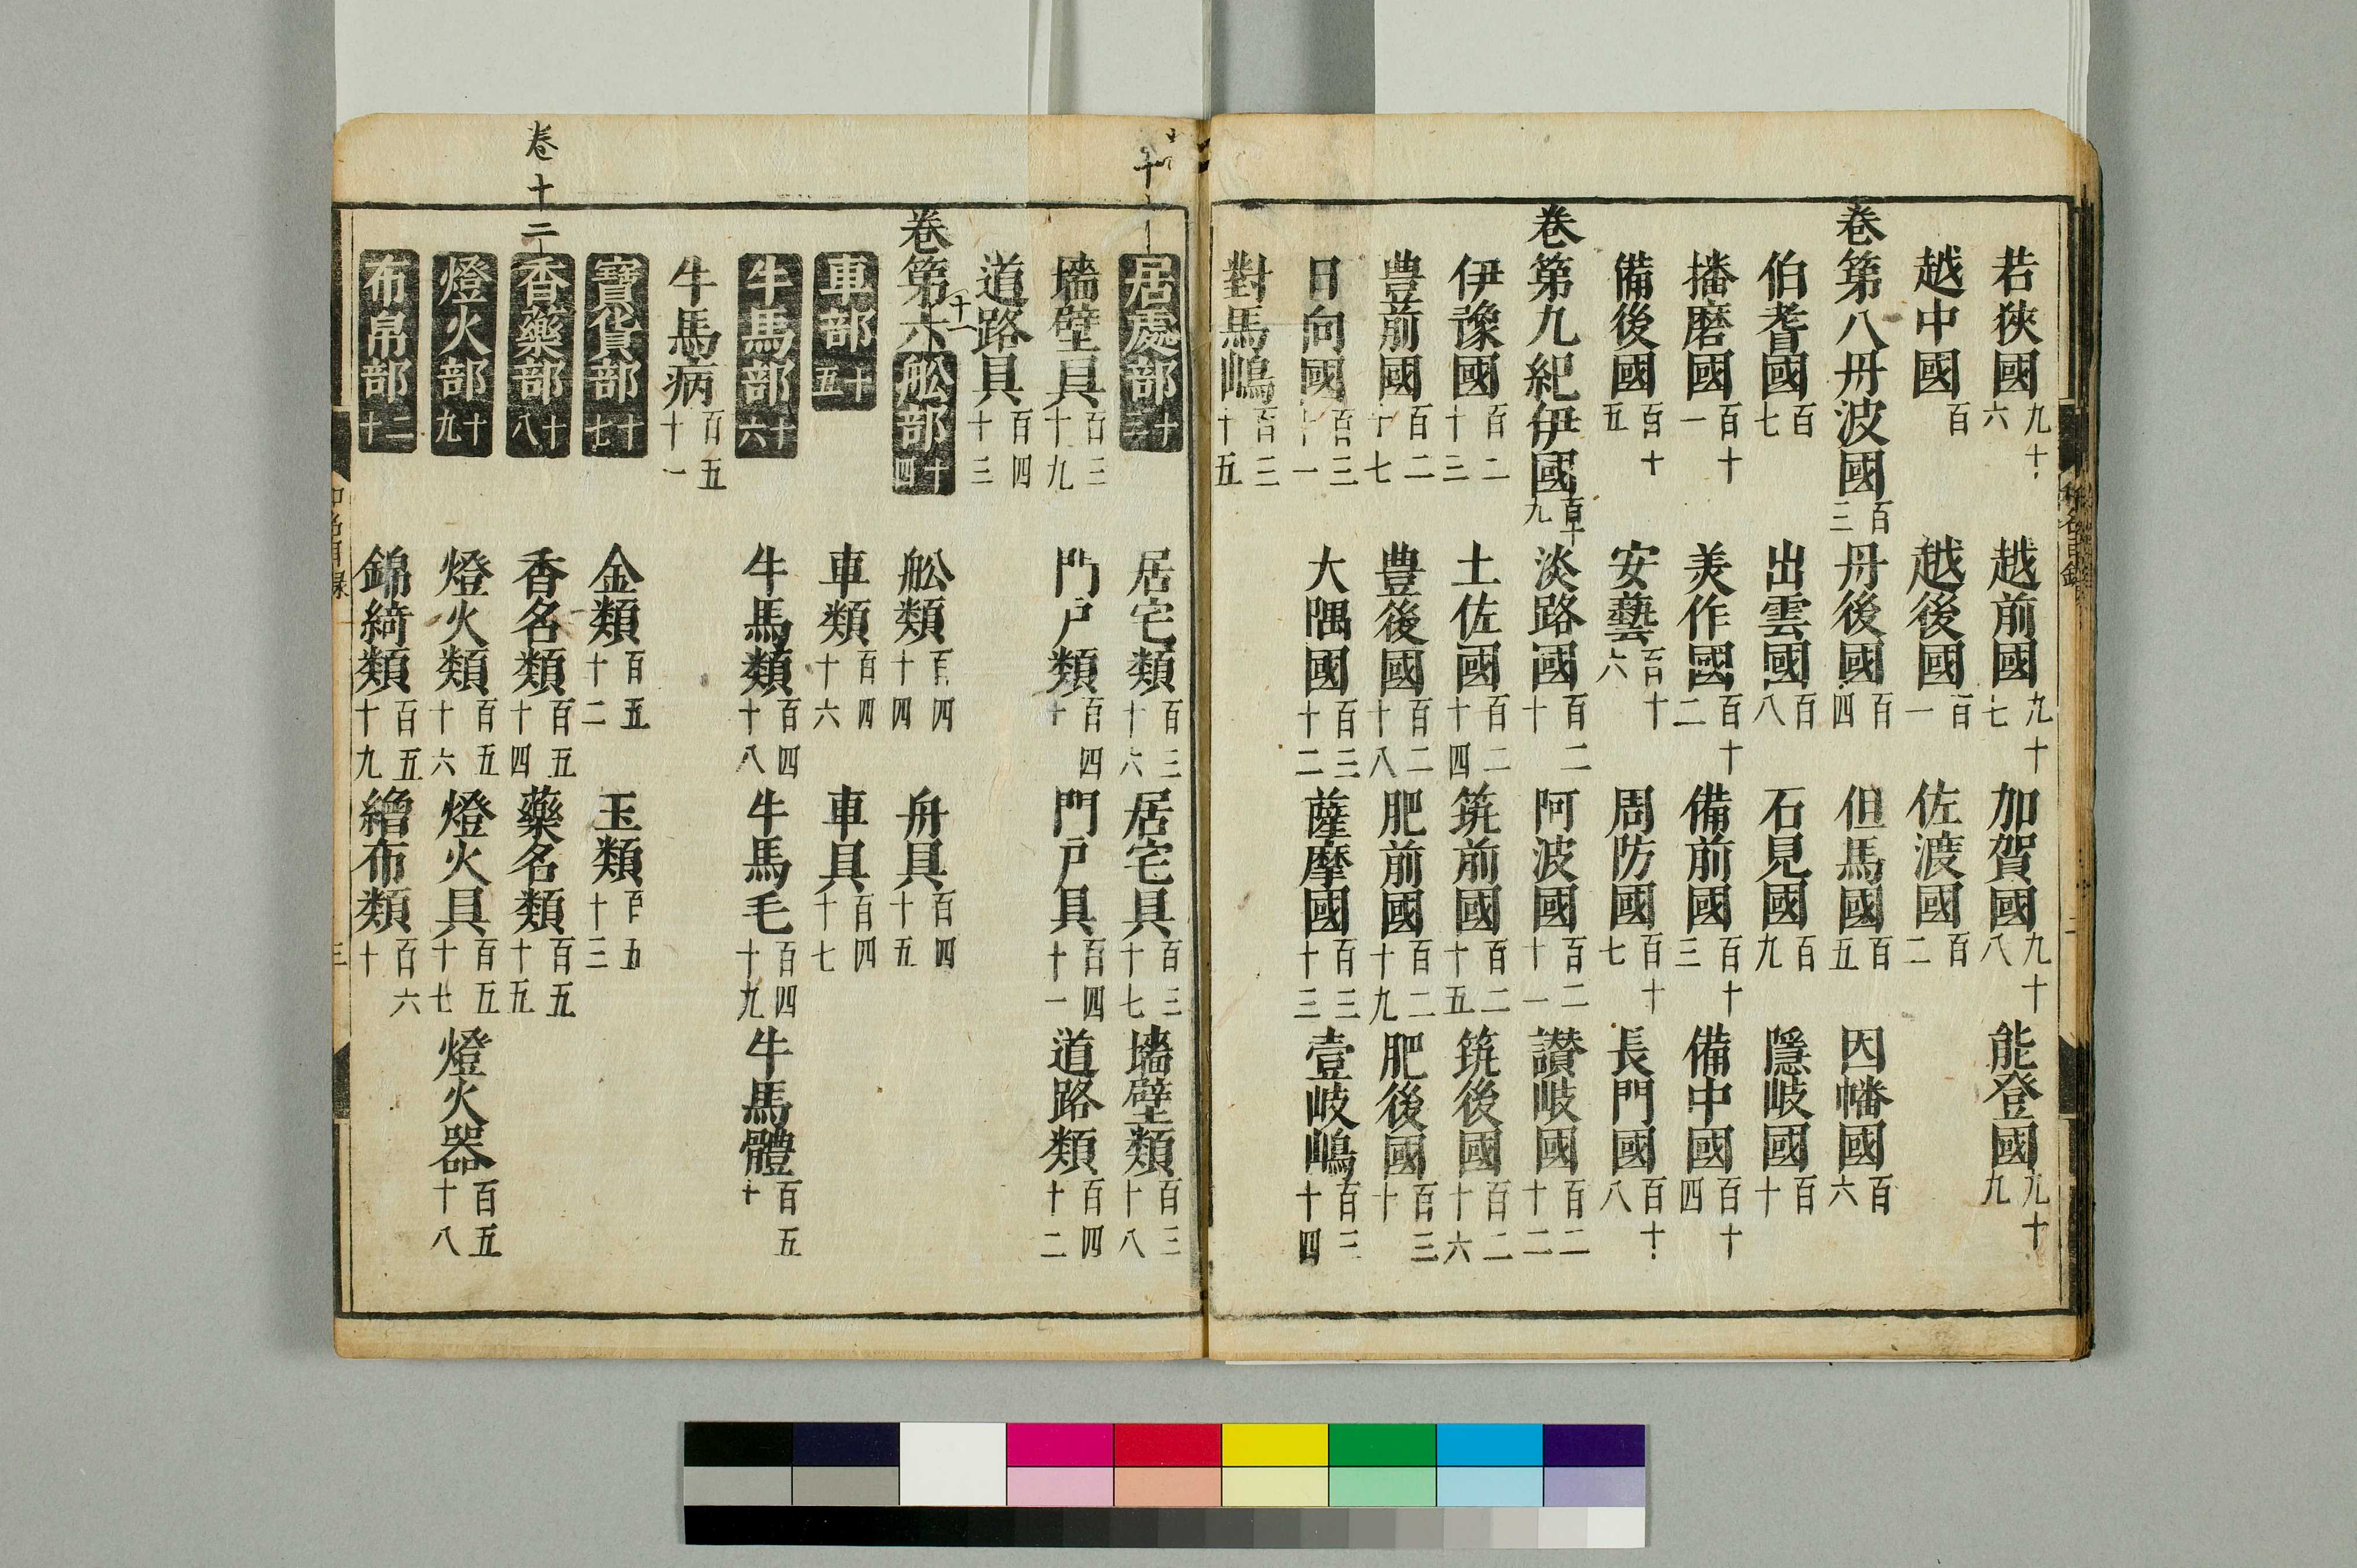 若狹國九十六 越前國九十七 加賀國九十八 能登國九十九
越中國百 越後國百一 佐渡國百二
卷第八丹波國百三 丹後國百四 但馬國百五 因幡國百六
伯耆國百七 出雲國百八 石見國百九 隱岐國百十
播磨國百十一 美作國百十二 備前國百十三 備中國百十四
備後國百十五 安藝百十六 周防國百十七 長門國百十八
卷第九紀伊國百十九 淡路國百二十 阿波國百二十一 讃岐國百二十二
伊豫國百二十三 土佐國百二十四 筑前國百二十五 筑後國百二十六
豊前國百二十七 豊後國百二十八 肥前國百二十九 肥後國百三十
日向國百三十一 大隅國百三十二 薩摩國百三十三 壹岐嶋百三十四
對馬嶋百三十五
居處部十三 居宅類百三十六 居宅具百三十七 墻壁類百三十八
墻壁具百三十九 門戸類百四十 門戸具百四十一 道路類百四十二
道路具百四十三
十一
卷第六舩部十四 舩類百四十四 舟具百四十五
車部十五 車類百四十六 車具百四十七
牛馬部十六 牛馬類百四十八 牛馬毛百四十九 牛馬體百五十
牛馬病百五十一
寶貨部十七 金類百五十二 玉類百五十三
卷十二
香藥部十八 香名類百五十四 藥名類百五十五
燈火部十九 燈火類百五十六 燈火具百五十七 燈火器百五十八
布帛部二十 錦綺類百五十九 繒布類百六十